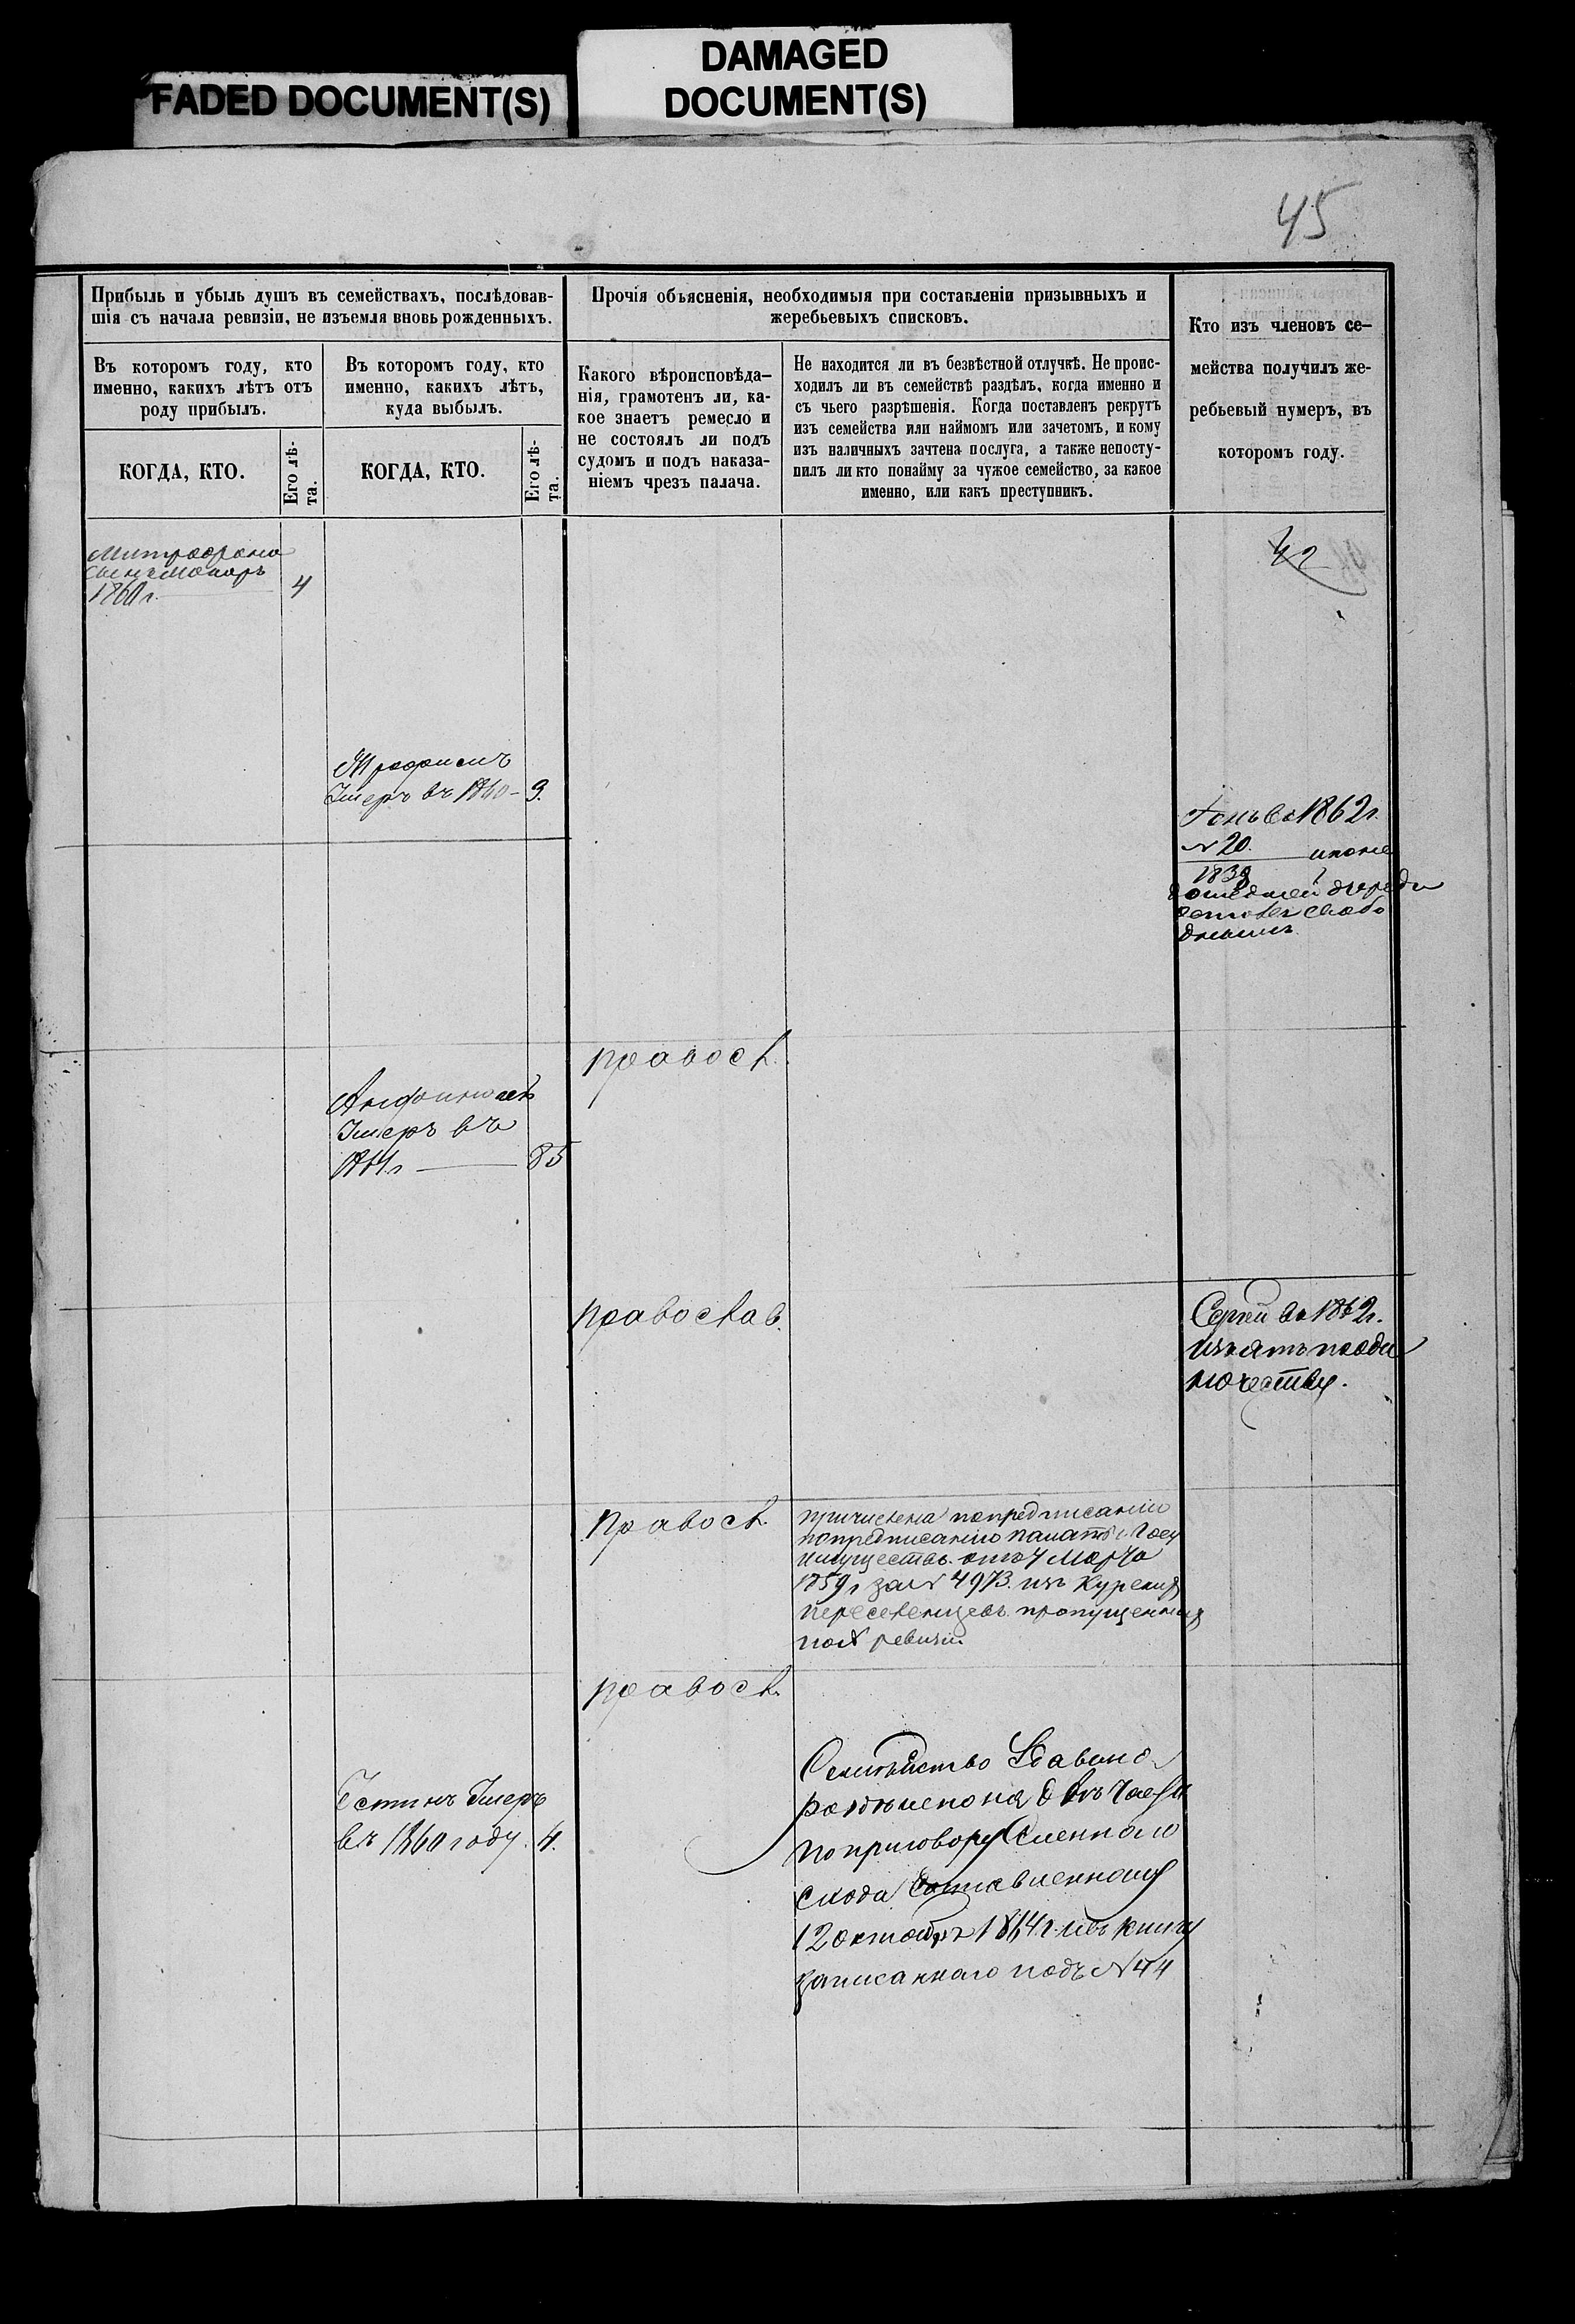 FADED DOCUMENT(S)
DAMAGED
DOCUMENT(S)
45
Прибыль и убыль душъ въ семействахъ, послѣдовав-
шія съ начала ревизіи, не изъемля вновь рожденныхъ.
Въ которомъ году, кто
именно, какихъ лѣтъ отъ
роду прибылъ.
Въ которомъ году, кто
именно, какихъ лѣтъ,
куда выбылъ.
КОГДА, КТО.
Его лѣ-
та.
КОГДА, КТО.
Его лѣ-
та.
Прочія объясненія, необходимыя при составленіи призывныхъ и
жеребьевыхъ списковъ.
Какого вѣроисповѣда-
нія, грамотенъ ли, ка-
кое знаетъ ремесло и
не состоялъ ли подъ
судомъ и подъ наказа-
ніемъ чрезъ палача.
Не находится ли въ безвѣстной отлучкѣ. Не проис-
ходилъ ли въ семействѣ раздѣлъ, когда именно и
съ чьего разрѣшенія. Когда поставленъ рекрутъ
изъ семейства или наймомъ или зачетомъ, и кому
изъ наличныхъ зачтена послуга, а также непосту-
пилъ ли кто понайму за чужое семейство, за какое
именно, или какъ преступникъ.
Кто изъ членовъ се-
мейства получилъ же-
ребьевый нумеръ, въ
которомъ году.
Митрофана
сынъ Макаръ
1860 г. 4
Трофимъ
Умеръ въ 1860 - 3.
въ 1862г.
№ 20.
правосл.
Умеръ въ
85
православ.
Сергей въ 1862г.
изъятъ по оди
ночеству.
правосл.
причислена попредписанію
попредписанію палаты Госу
имуществъ отъ 4 Марта
1859 г за № 4973. изъ Курскихъ
переселенцевъ пропущенныхъ
по X ревизіи
правосл.
Устинъ Умеръ
въ 1860 году. 4.
Семейство
раздѣлено на двѣ части
по приговору
схода составленному
12 октября 1864 г. въ книгу
записаннаго подъ № 44